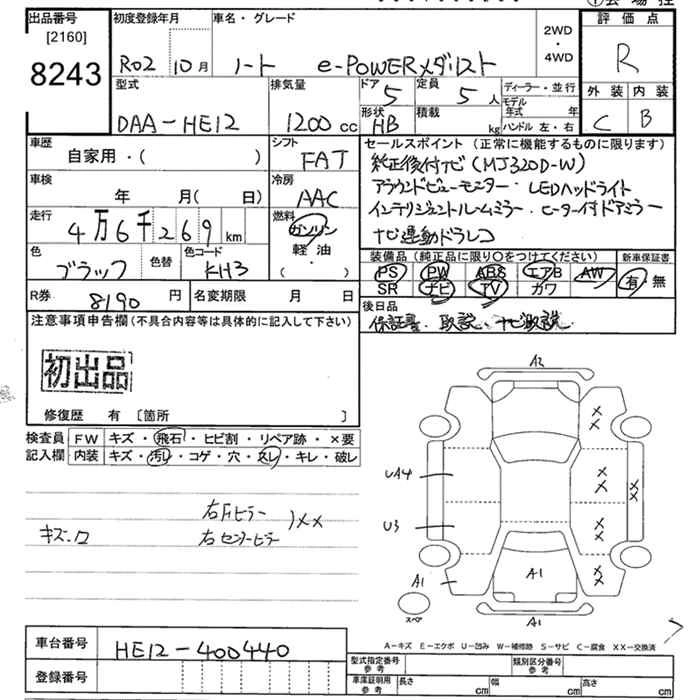 出品番号
[2160]
8243
初度登録年月
R02 10月
車名・グレード
ノート e-POWERメダリスト
2WD
・
4WD
評価点
R
外装 内装
C B
型式
DAA-HE12
排気量
1200cc
ドア
5
定員
5人
形状
HB
積載
kg
ディーラー・並行
モデル年式 年
ハンドル 左・右
車歴
自家用・( )
シフト
FAT
車検
年 月( 日)
冷房
AAC
走行
4万6千269km
燃料
ガソリン
軽油
・
色
ブラック
色替
色コード
KH3
R券
8190円
名変期限 月 日
セールスポイント(正常に機能するものに限ります)
純正後付ナビ(MJ320D-W)
アラウンドビューモニター・LEDヘッドライト
インテリジェントルームミラー・ヒーター付ドアミラー
ナビ連動ドラレコ
装備品(純正品に限り〇をつけてください)
新車保証書
PS PW ABS エアB AW
SR ナビ TV カワ
有 無
後日品
保証書、取説、ナビ取説
注意事項申告欄(不具合内容等は具体的に記入して下さい)
初出品
修復歴 有 〔箇所 〕
検査員
記入欄
FW キズ・飛石・ヒビ割・リペア跡・×要
内装 キズ・汚レ・コゲ・穴・スレ・キレ・破レ
右Fピラー
右センターピラー
)XX
キズ・凹
A2
XX
UA4
XX
XX
U3
XX
A1
XX
A1
スペア
A1
A-キズ E-エクボ U-凹み W-補修跡 S-サビ C-腐食 XX-交換済
車台番号
HE12-400440
登録番号
型式指定番号
参考
類別区分番号
参考
車庫証明用
参考
長さ cm
幅 cm
高さ cm